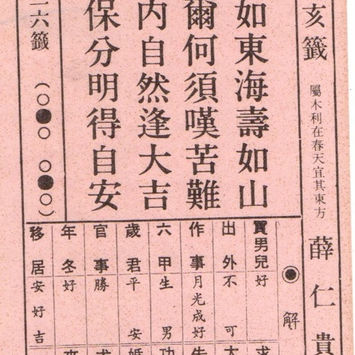 亥籤
屬木利在春天宜其東方
薛仁貴
如東海壽如山
爾何須嘆苦難
內自然逢大吉
保分明得自安
二六籤
解
買男兒好
出外不可
作事月光成好
六甲生男
歲君平安
官事勝
年冬好
移居安好吉